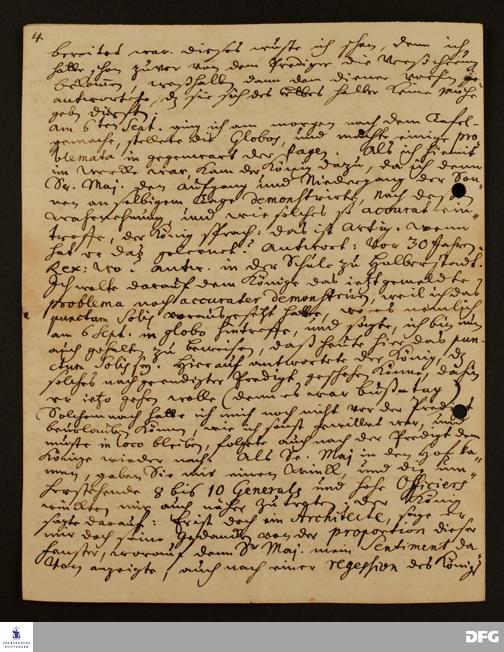 4.
bereitet war. dieses wuste ich schon, denn ich
hatte schon zuvor von dem Prediger die Versicherung
bekommen, weshalb dann dem diener vorhin
antwortete, daß sie sich deshalber keine mühe
geb dürften
am 6ten Sept. ging ich am morgen nach dem Tafel-
gemache, stellete die Globos, und machte einige pro
blemata in gegenwart der Pagen. Als ich hiemit
im Werck war, kam der König dazu, da ich denn
Sr. Maj. den Aufgang und Niedergang der Son-
nen an selbigem Tage demonstrirte, nach dessen
wahrnehmung, und wie solches so accurat ein-
treffe, der König sprach: das ist artig. wenn
hat er das gelernet? Antwort: Vor 30 Jahren.
Rex: wo? antw. in der Schule zu Halberstadt.
Ich wolte darauf dem Könige das ietzt gemeldete
problema noch accurater demonstriren, weil ich das
punctum Solis vorausgesetzt hatte, wo es nemlich
am 6 Sept. in globo hintreffe, und sagte, ich bin nun
auch gehalten, zu beweisen, daß heute hier das pun-
ctum Solis sey. Hierauf antwortete der König, daß
solches nach geendigter Predigt geschehen könne, dahin
er ietzo gehen wolte (denn es war buß-tag)
Solchem nach hatte ich mich noch nicht vor der Predigt
beurlauben können, wie ich sonst gewillet war, und
muste in loco bleiben, folgete auch nach der Predigt dem
Könige wieder nach. Als Sr. Maj in den Hof ka-
men, gaben Sie mir einen Winck und die um-
herstehende 8 bis 10 Generals und hohe Officiers
winckten mir auch näher zu treten. der König
sagte darauf: Er ist doch ein Architecte, sage er
mir doch seine Gedancken von der proportion dieser
Fenster, worauf denn Sr Maj. mein Sentiment da-
von anzeigte, auch nach einer regession des Königs
FRANCKESCHE STIFTUNGEN
DFG